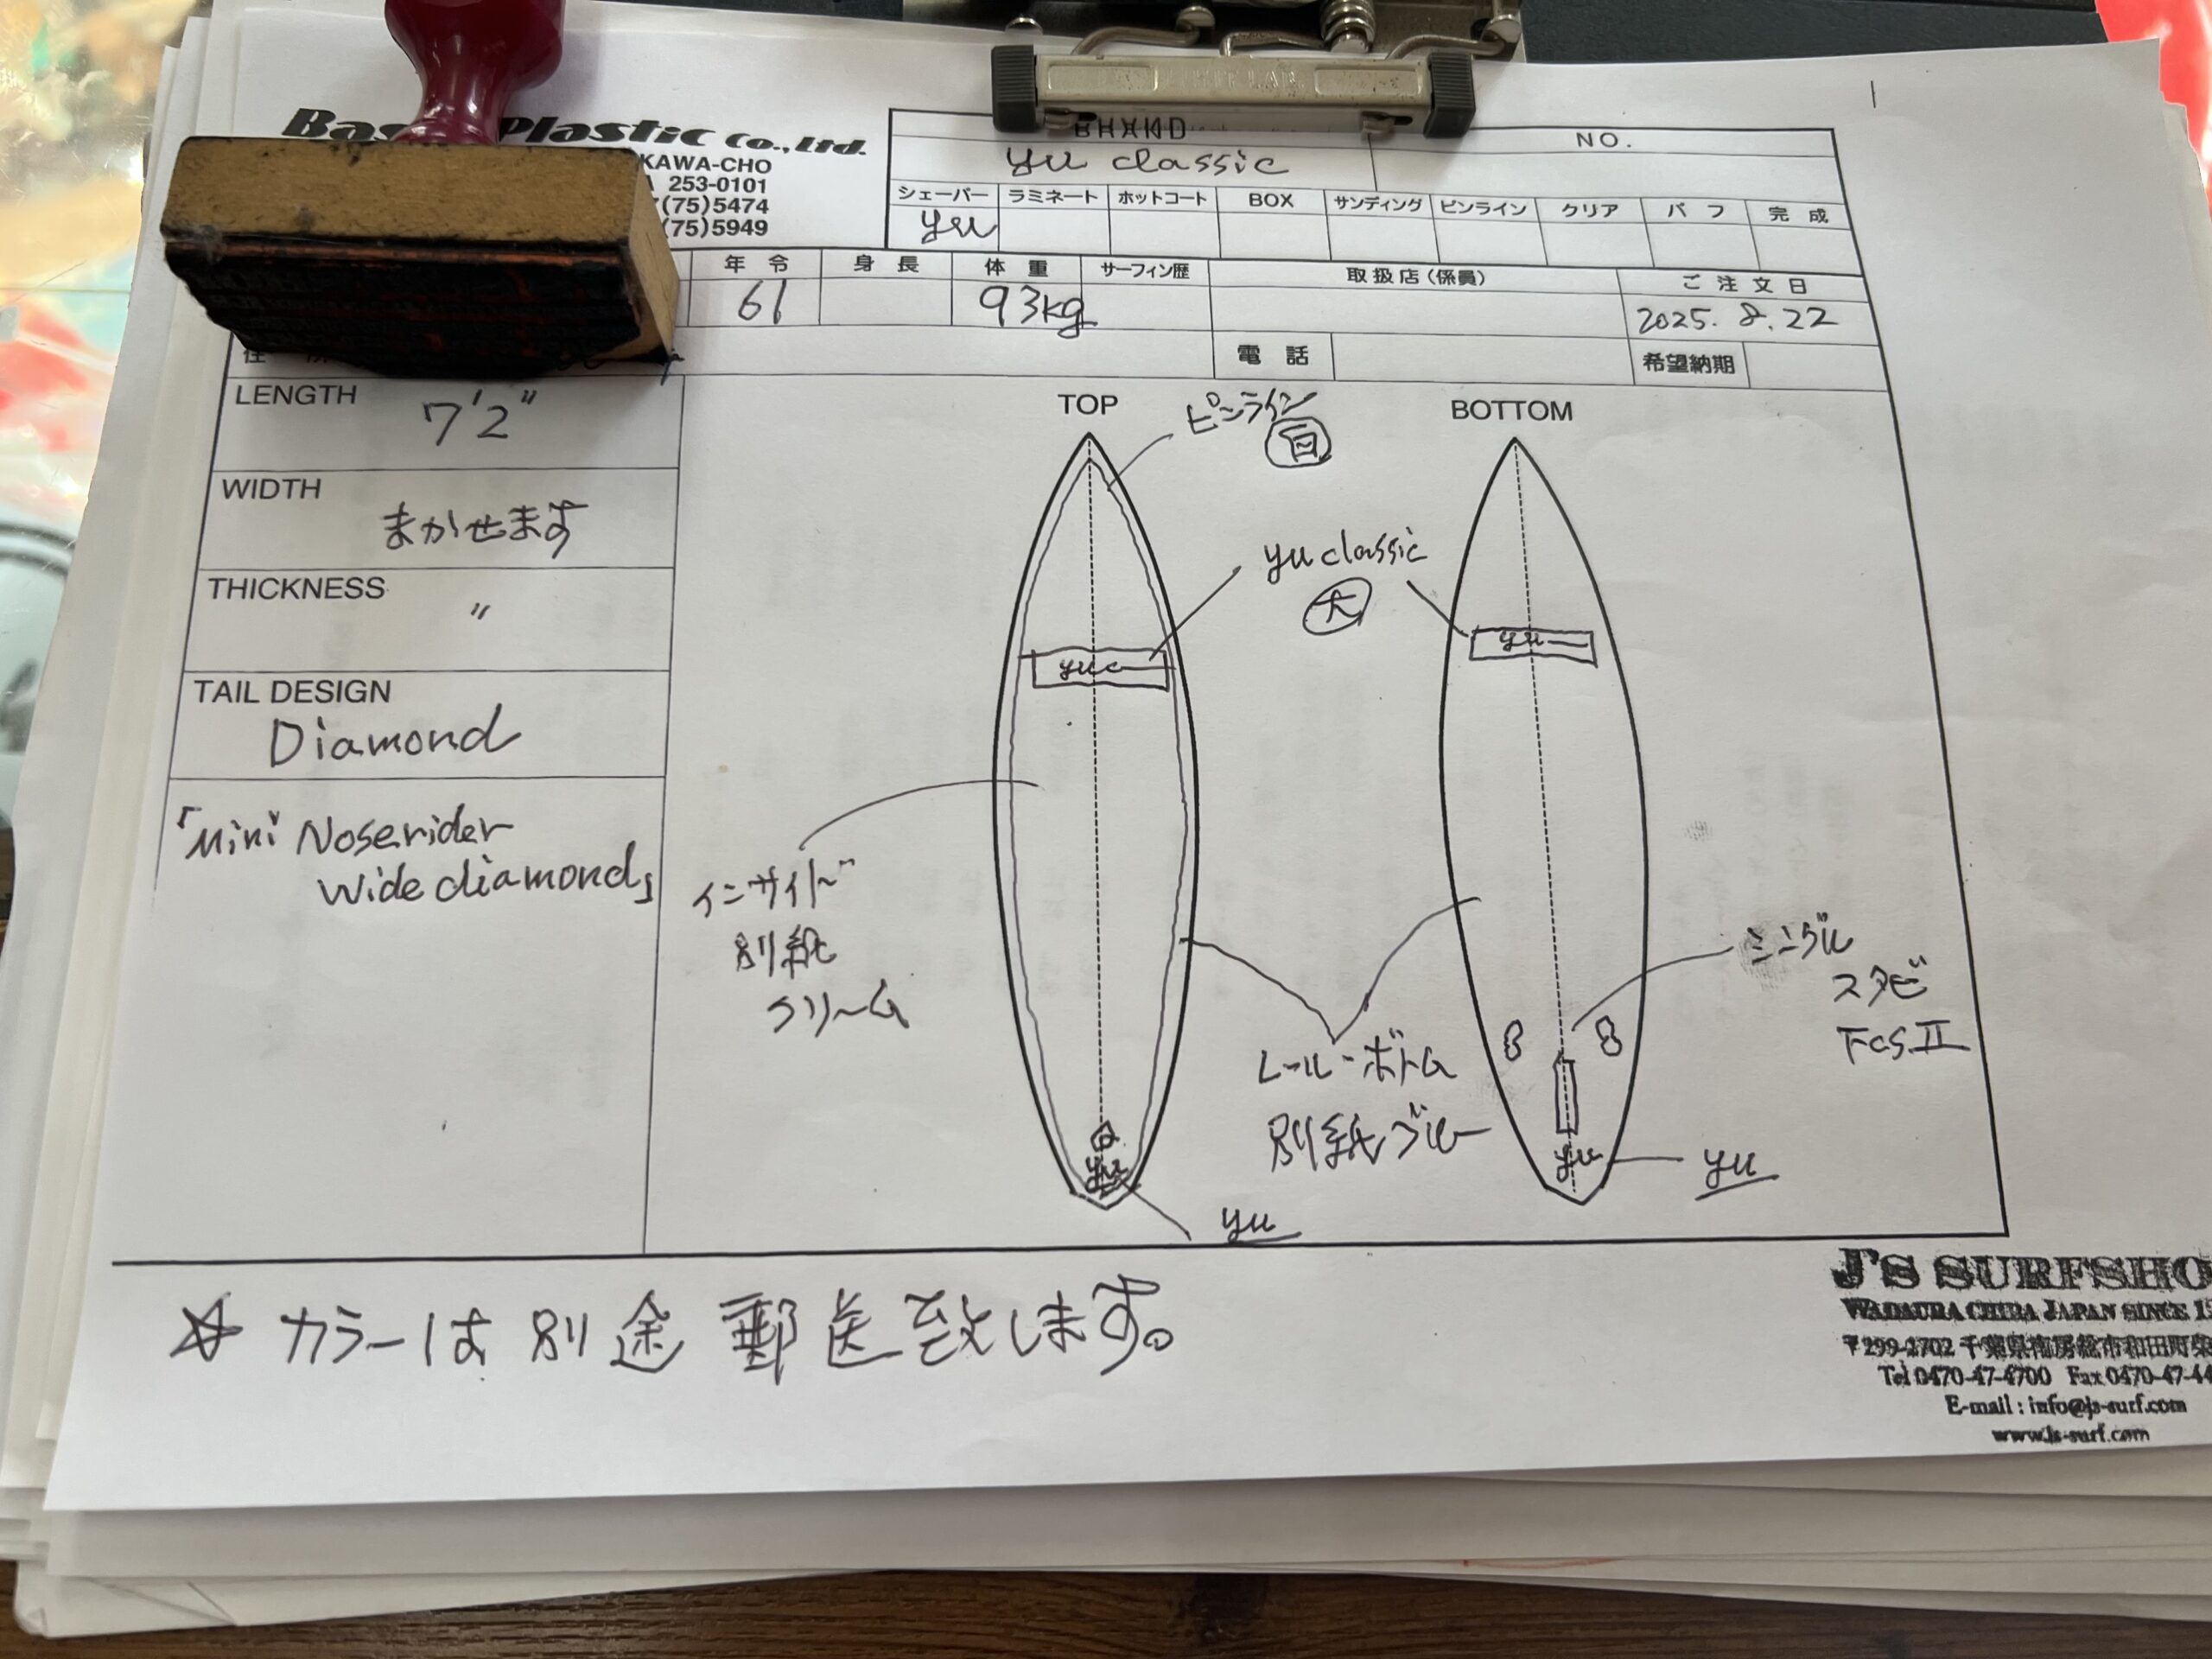 Plastic Co.,Ltd.
KAWA-CHO
253-0101
(75)5474
(75)5949
BRAND
NO.
yu classic
シェーパー ラミネート ホットコート BOX サンディング ピンライン クリア バフ 完成
yu
年令 身長 体重 サーフィン歴 取扱店(係員) ご注文日
61 93kg 2025.8.22
電話 希望納期
LENGTH 7'2"
WIDTH
まかせます
THICKNESS
"
TAIL DESIGN
Diamond
「Mini Noserider
Wide diamond」
TOP
ピンライン
BOTTOM
yu classic
大
yu c
yu
インサイド
別紙
クリーム
レール・ボトム
別紙ブルー
シングル
スタビ
FCS II
yu
yu
yu
yu
☆ カラーは別途郵送致します。
J'S SURFSHO
WADAURA CHIBA JAPAN SINCE
〒299-2702 千葉県南房総市和田町
Tel 0470-47-4700 Fax 0470-47-44
E-mail : info@js-surf.com
www.js-surf.com